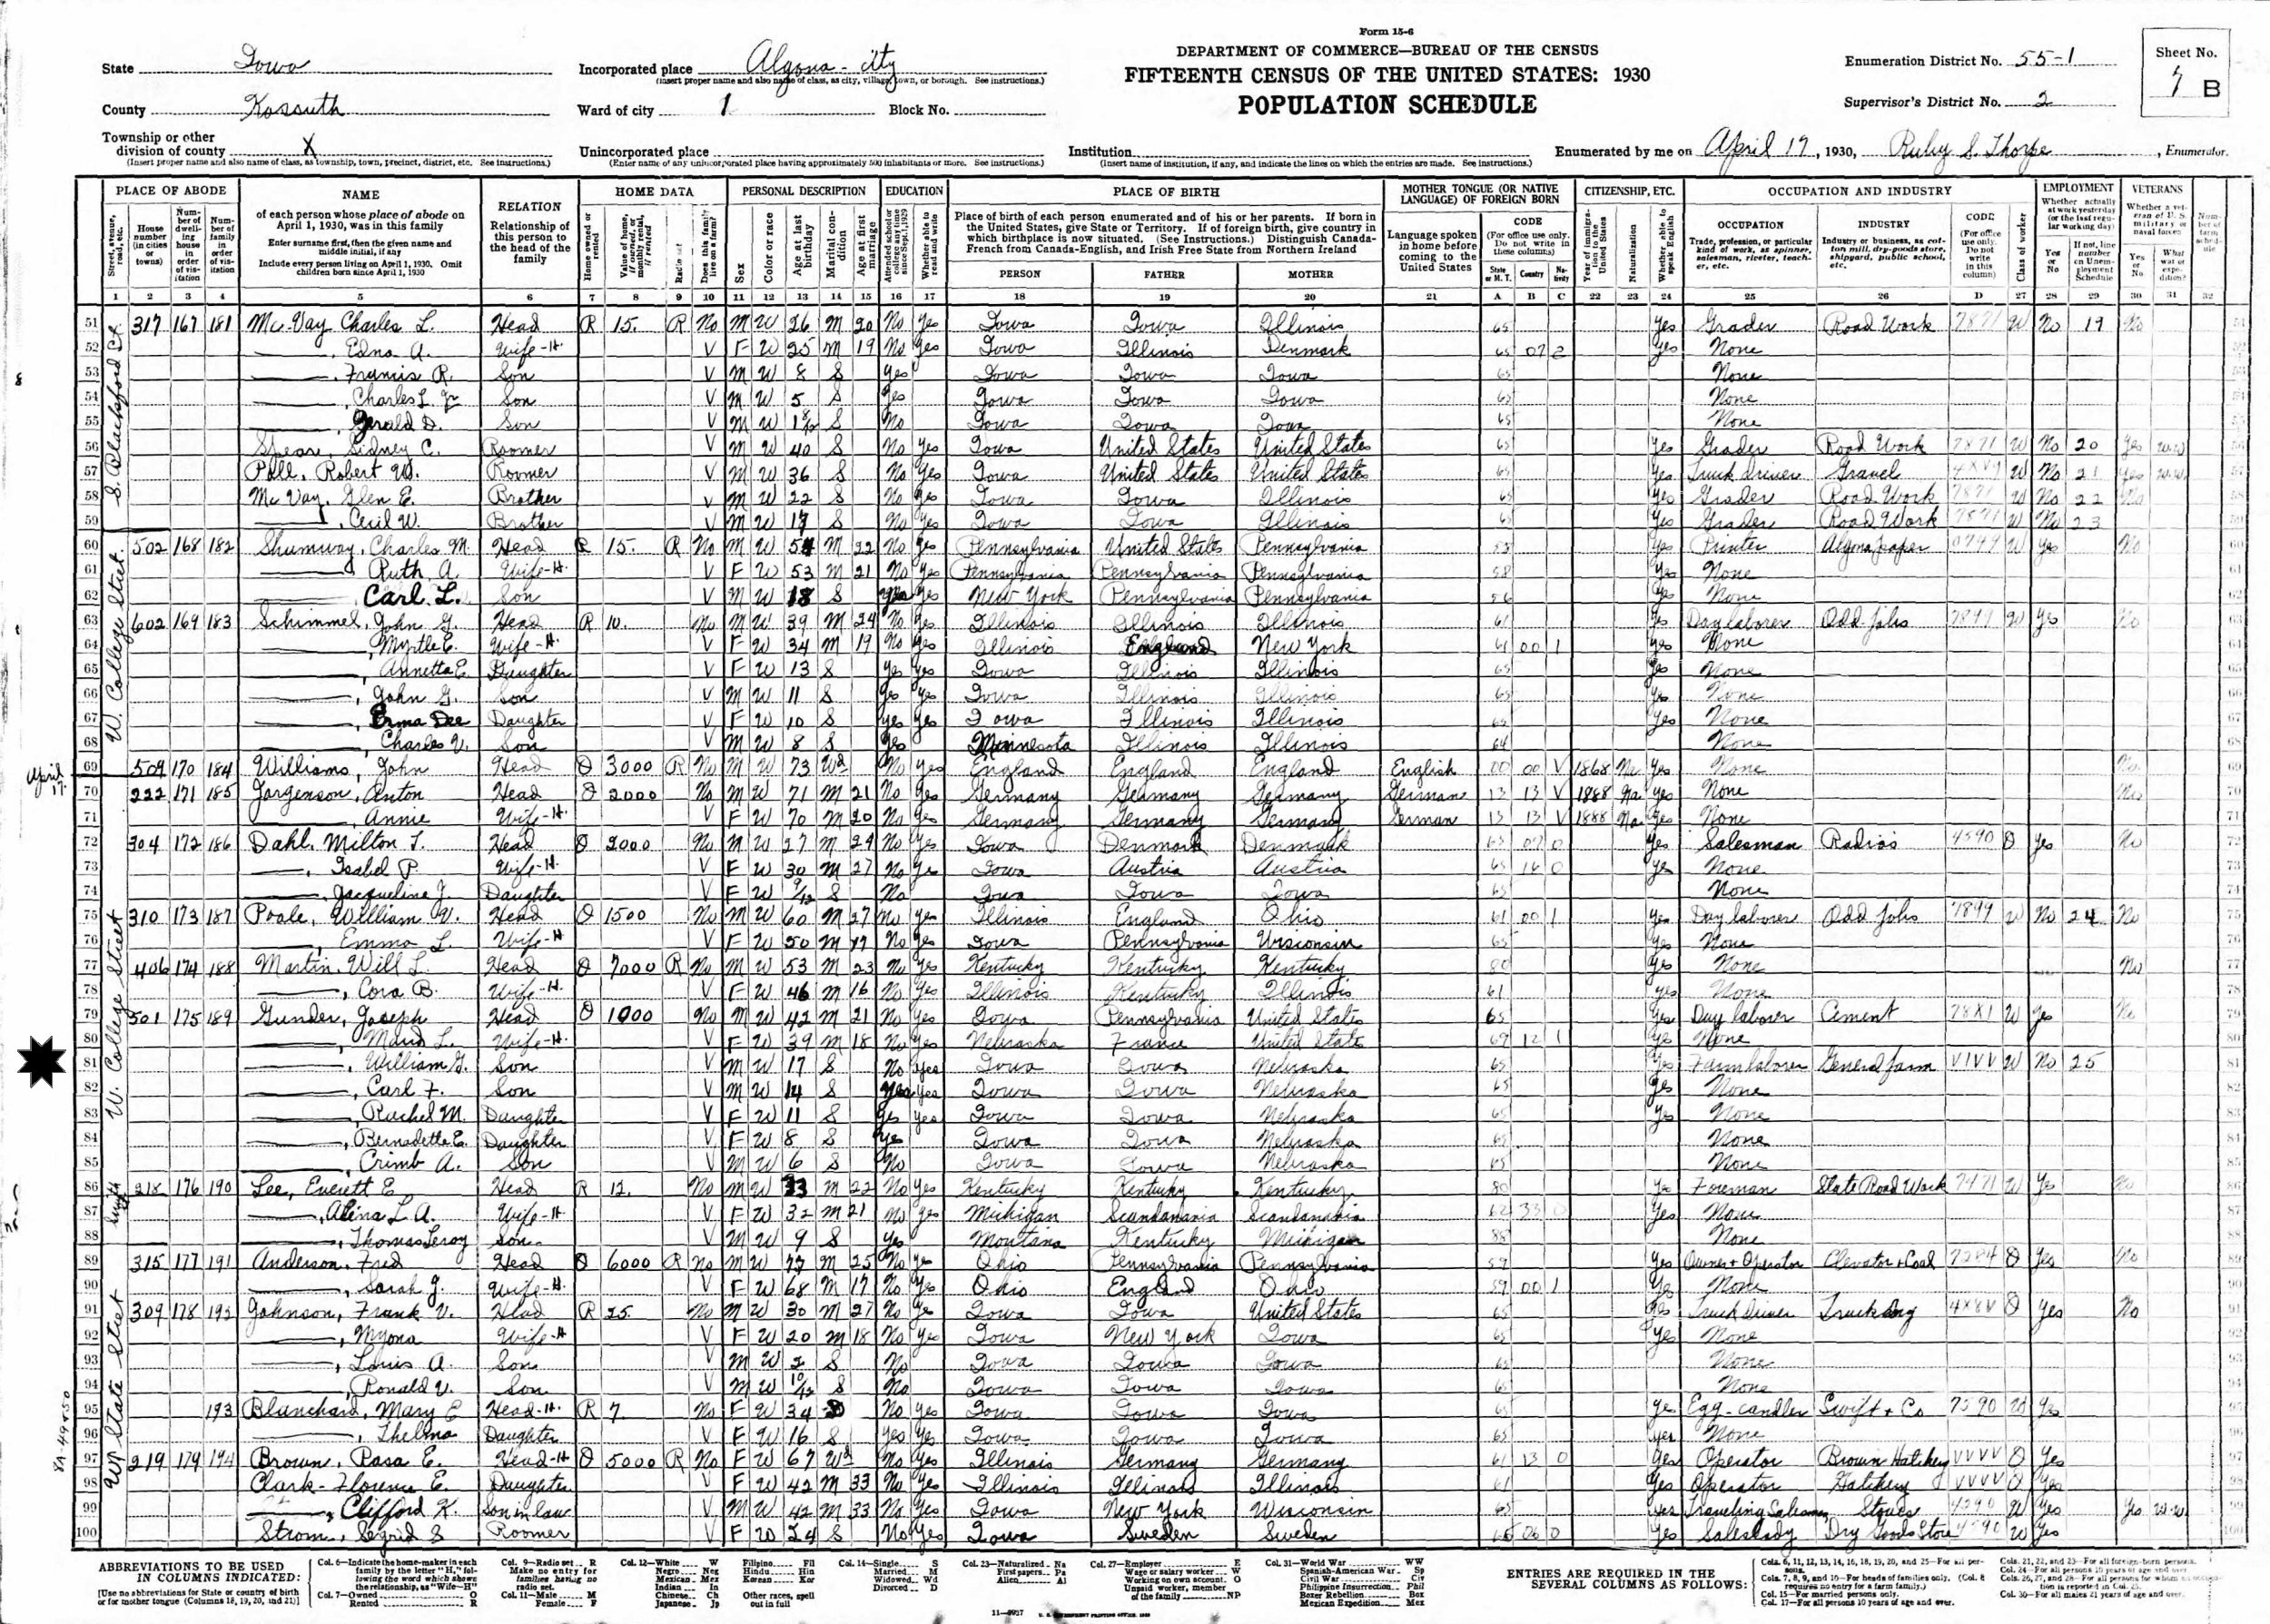 Form 15-6
DEPARTMENT OF COMMERCE—BUREAU OF THE CENSUS
FIFTEENTH CENSUS OF THE UNITED STATES: 1930
POPULATION SCHEDULE
State Iowa
County Kossuth
Township or other division of county X
(Insert proper name and also name of class, as township, town, precinct, district, etc. See instructions.)
Incorporated place Algona - city
(Insert proper name and also name of class, as city, village, town, or borough. See instructions.)
Ward of city 1 Block No.
Unincorporated place
(Enter name of any unincorporated place having approximately 500 inhabitants or more. See instructions.)
Institution
(Insert name of institution, if any, and indicate the lines on which the entries are made. See instructions.)
Enumeration District No. 55-1
Supervisor's District No. 2
Sheet No.
7 B
Enumerated by me on April 17, 1930, Ruby S. Thorpe, Enumerator.
PLACE OF ABODE NAME RELATION HOME DATA PERSONAL DESCRIPTION EDUCATION PLACE OF BIRTH MOTHER TONGUE (OR NATIVE LANGUAGE) OF FOREIGN BORN CITIZENSHIP, ETC. OCCUPATION AND INDUSTRY EMPLOYMENT VETERANS
of each person whose place of abode on April 1, 1930, was in this family
Enter surname first, then the given name and middle initial, if any
Include every person living on April 1, 1930. Omit children born since April 1, 1930
Relationship of this person to the head of the family
Place of birth of each person enumerated and of his or her parents. If born in the United States, give State or Territory. If of foreign birth, give country in which birthplace is now situated. (See Instructions.) Distinguish Canada-French from Canada-English, and Irish Free State from Northern Ireland
PERSON FATHER MOTHER
Language spoken in home before coming to the United States
OCCUPATION INDUSTRY CODE
1 2 3 4 5 6 7 8 9 10 11 12 13 14 15 16 17 18 19 20 21 A B C 22 23 24 25 26 D 27 28 29 30 31 32
S. Blackford St.
51 317 167 181 Mc Vay Charles L. Head R 15. R No M W 26 M 20 No Yes Iowa Iowa Illinois 65 Yes Grader Road Work 7871 W No 19 No
52 , Edna A. Wife-H V F W 25 M 19 No Yes Iowa Illinois Denmark 65 07 2 Yes None
53 , Francis R. Son V M W 8 S Yes Iowa Iowa Iowa 65 None
54 , Charles L. Jr Son V M W 5 S Yes Iowa Iowa Iowa 65 None
55 , Gerald D. Son V M W S No Iowa Iowa Iowa 65 None
56 Spear, Sidney C. Roomer V M W 40 S No Yes Iowa United States United States 65 Yes Grader Road Work 7871 W No 20 Yes WW
57 Robert W. Roomer V M W 36 S No Yes Iowa United States United States 65 Yes Truck driver Gravel W No 21 Yes WW
58 Mc Vay, Glen E. Brother V M W 22 S No Yes Iowa Iowa Illinois 65 Yes Grader Road Work 7871 W No 22 No
59 , Cecil W. Brother V M W S No Yes Iowa Iowa Illinois 65 Yes Grader Road Work 7871 W No 23
W. College Street
60 502 168 182 Shumway, Charles M. Head R 15. R No M W 54 M 22 No Yes Pennsylvania United States Pennsylvania Yes Printer Algona paper W Yes No
61 , Ruth A. Wife-H. V F W 53 M 21 No Yes Pennsylvania Pennsylvania Pennsylvania 58 Yes None
62 Carl L. Son V M W 18 S Yes Yes New York Pennsylvania Pennsylvania 56 Yes None
63 602 169 183 Schimmel, John G. Head R 10. No M W 39 M 24 No Yes Illinois Illinois Illinois 61 Yes Day laborer Odd Jobs W Yes No
64 , Myrtle E. Wife-H. V F W 34 M 19 No Yes Illinois England New York 61 00 1 Yes None
65 , Annetta E. Daughter V F W 13 S Yes Yes Iowa Illinois Illinois 65 Yes None
66 , John G. Son V M W 11 S Yes Yes Iowa Illinois Illinois 65 Yes None
67 , Erma Dee Daughter V F W 10 S Yes Yes Iowa Illinois Illinois 65 Yes None
68 , Charles V. Son V M W 8 S Yes Minnesota Illinois Illinois 64 None
April 17.
69 509 170 184 Williams, John Head O 3000 R No M W 73 Wd No Yes England England England English 00 00 V 1868 Na Yes None No
70 222 171 185 Jorgenson, Anton Head O 2000 No M W 71 M 21 No Yes Germany Germany Germany German 13 13 V 1888 Na Yes None No
71 , Annie Wife-H. V F W 70 M 20 No Yes Germany Germany Germany German 13 13 V 1888 Na Yes None
72 304 172 186 Dahl, Milton T. Head O 2000 No M W 27 M 24 No Yes Iowa Denmark Denmark 65 07 0 Yes Salesman Radios 4590 O Yes No
73 , Isabel P. Wife-H V F W 30 M 27 No Yes Iowa Austria Austria 65 16 0 Yes None
74 , Jacqueline J. Daughter V F W S No Iowa Iowa Iowa 65 None
W. College Street
75 310 173 187 Poale, William V. Head O 1500 No M W 60 M 27 No Yes Illinois England Ohio 61 00 1 Yes Day laborer Odd Jobs 7899 W No 24 No
76 , Emma L. Wife-H V F W 50 M No Yes Iowa Pennsylvania Wisconsin 65 Yes None
77 406 174 188 Martin, Will L. Head O 7000 R No M W 53 M 23 No Yes Kentucky Kentucky Kentucky 80 Yes None No
78 , Cora B. Wife-H. V F W 46 M 16 No Yes Illinois Kentucky Illinois 61 Yes None
79 501 175 189 Gunder, Joseph Head O 1000 No M W 42 M 21 No Yes Iowa Pennsylvania United States 65 Yes Day laborer Cement W Yes No
80 , Maud L. Wife-H. V F W 39 M 18 No Yes Nebraska France United States 69 12 1 Yes None
81 , William G. Son V M W 17 S No Yes Iowa Iowa Nebraska 65 Yes Farm laborer General farm VIVV W No 25
82 , Carl F. Son V M W 14 S Yes Yes Iowa Iowa Nebraska 65 Yes None
83 , Rachel M. Daughter V F W 11 S Yes Yes Iowa Iowa Nebraska 65 Yes None
84 , Bernadette E. Daughter V F W 8 S Yes Iowa Iowa Nebraska 65 None
85 , Crimb A. Son V M W 6 S No Iowa Iowa Nebraska 65 None
86 218 176 190 Lee, Everett E Head R 12. No M W 33 M 22 No Yes Kentucky Kentucky Kentucky 80 Yes Foreman State Road Work W Yes No
87 , L. A. Wife-H V F W 32 M 21 No Yes Michigan Scandanavia Scandanavia 62 33 0 Yes None
88 , Thomas Leroy Son V M W 9 S Yes Montana Kentucky Michigan 88 None
W State Street
89 315 177 191 Anderson, Fred Head O 6000 R No M W M 25 No Yes Ohio Pennsylvania Pennsylvania 59 Yes Owner + Operator Elevator + Coal O Yes No
90 , Sarah J. Wife-H. V F W 68 M 17 No Yes Ohio England Ohio 59 00 1 Yes None
91 309 178 192 Johnson, Frank V. Head R 25. No M W 30 M 27 No Yes Iowa Iowa United States 65 Yes Truck driver Trucking O Yes No
92 , Myona Wife-H V F W 20 M 18 No Yes Iowa New York Iowa 65 Yes None
93 , Louis A. Son V M W 2 S No Iowa Iowa Iowa 65 None
94 , Ronald V. Son V M W 10/12 S No Iowa Iowa Iowa 65 None
95 193 Blanchard, Mary E Head-H. R 7. No F W 34 D No Yes Iowa Iowa Iowa 65 Yes Egg-candler Swift + Co 7590 W Yes
96 , Thelma Daughter V F W 16 S Yes Yes Iowa Iowa Iowa 65 Yes None
97 219 179 194 Brown, Rosa E. Head-H O 5000 R No F W 67 Wd No Yes Illinois Germany Germany 61 13 0 Yes Operator Brown Hatchery VVVV O Yes
98 Clark - Florence E. Daughter V F W 42 M 33 No Yes Illinois Illinois Illinois 61 Yes Operator Hatchery VVVV O Yes
99 , Clifford K. Son in law V M W 42 M 33 No Yes Iowa New York Wisconsin 65 Yes Traveling Salesman Stoves 4290 W Yes Yes W.W
100 Strom, Segrid S Roomer V F W 24 S No Yes Iowa Sweden Sweden 65 06 0 Yes Saleslady Dry Goods Store 4590 W Yes
ABBREVIATIONS TO BE USED IN COLUMNS INDICATED:
[Use no abbreviations for State or country of birth or for mother tongue (Columns 18, 19, 20, and 21)]
Col. 6—Indicate the home-maker in each family by the letter "H," following the word which shows the relationship, as "Wife—H"
Col. 7—Owned O Rented R
Col. 9—Radio set R Make no entry for families having no radio set.
Col. 11—Male M Female F
Col. 12—White W Negro Neg Mexican Mex Indian In Chinese Ch Japanese Jp
Filipino Fil Hindu Hin Korean Kor Other races, spell out in full
Col. 14—Single S Married M Widowed Wd Divorced D
Col. 23—Naturalized Na First papers Pa Alien Al
Col. 27—Employer E Wage or salary worker W Working on own account O Unpaid worker, member of the family NP
Col. 31—World War WW Spanish-American War Sp Civil War Civ Philippine Insurrection Phil Boxer Rebellion Box Mexican Expedition Mex
ENTRIES ARE REQUIRED IN THE SEVERAL COLUMNS AS FOLLOWS:
Cols. 6, 11, 12, 13, 14, 16, 18, 19, 20, and 25—For all persons.
Cols. 7, 8, 9, and 10—For heads of families only. (Col. 8 requires no entry for a farm family.)
Col. 15—For married persons only.
Col. 17—For all persons 10 years of age and over.
Cols. 21, 22, and 23—For all foreign-born persons.
Col. 24—For all persons 10 years of age and over.
Cols. 26, 27, and 28—For all persons for whom an occupation is reported in Col. 25.
Col. 30—For all males 21 years of age and over.